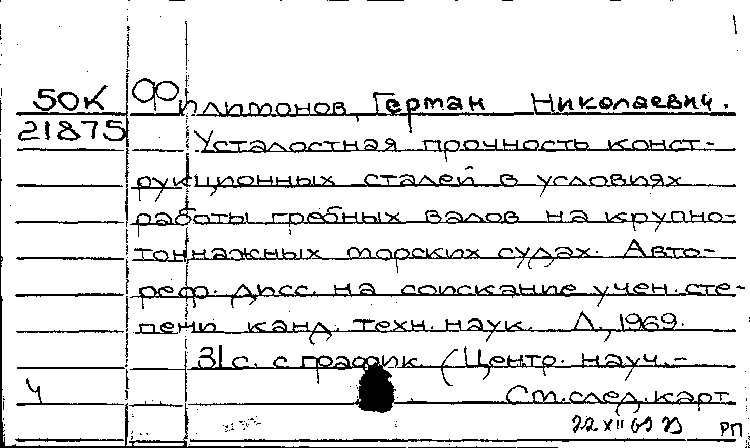 50К Филимонов, Герман Николаевич.
21875 Усталостная прочность конст-
рукционных сталей в условиях
работы гребных валов на крупно-
тоннажных морских судах. Авто-
реф. дисс. на соискание учен. сте-
пени канд. техн. наук. Л., 1969.
31с. с график. (Центр. науч.-
Ч См. след. карт.
22 XII 69
РП